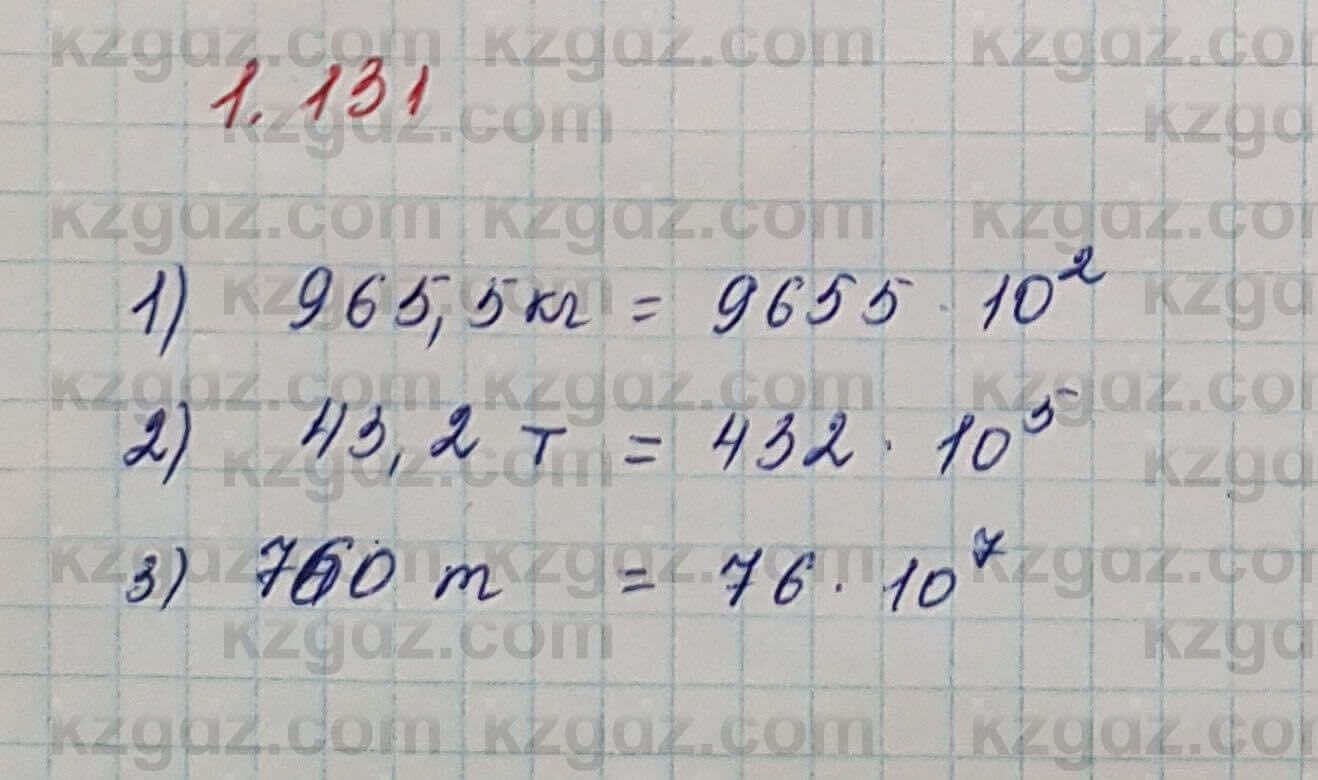 1.131
1) 965,5 кг = 9655 · 10²
2) 43,2 т = 432 · 10⁵
3) 760 т = 76 · 10⁷
kzgdz.com